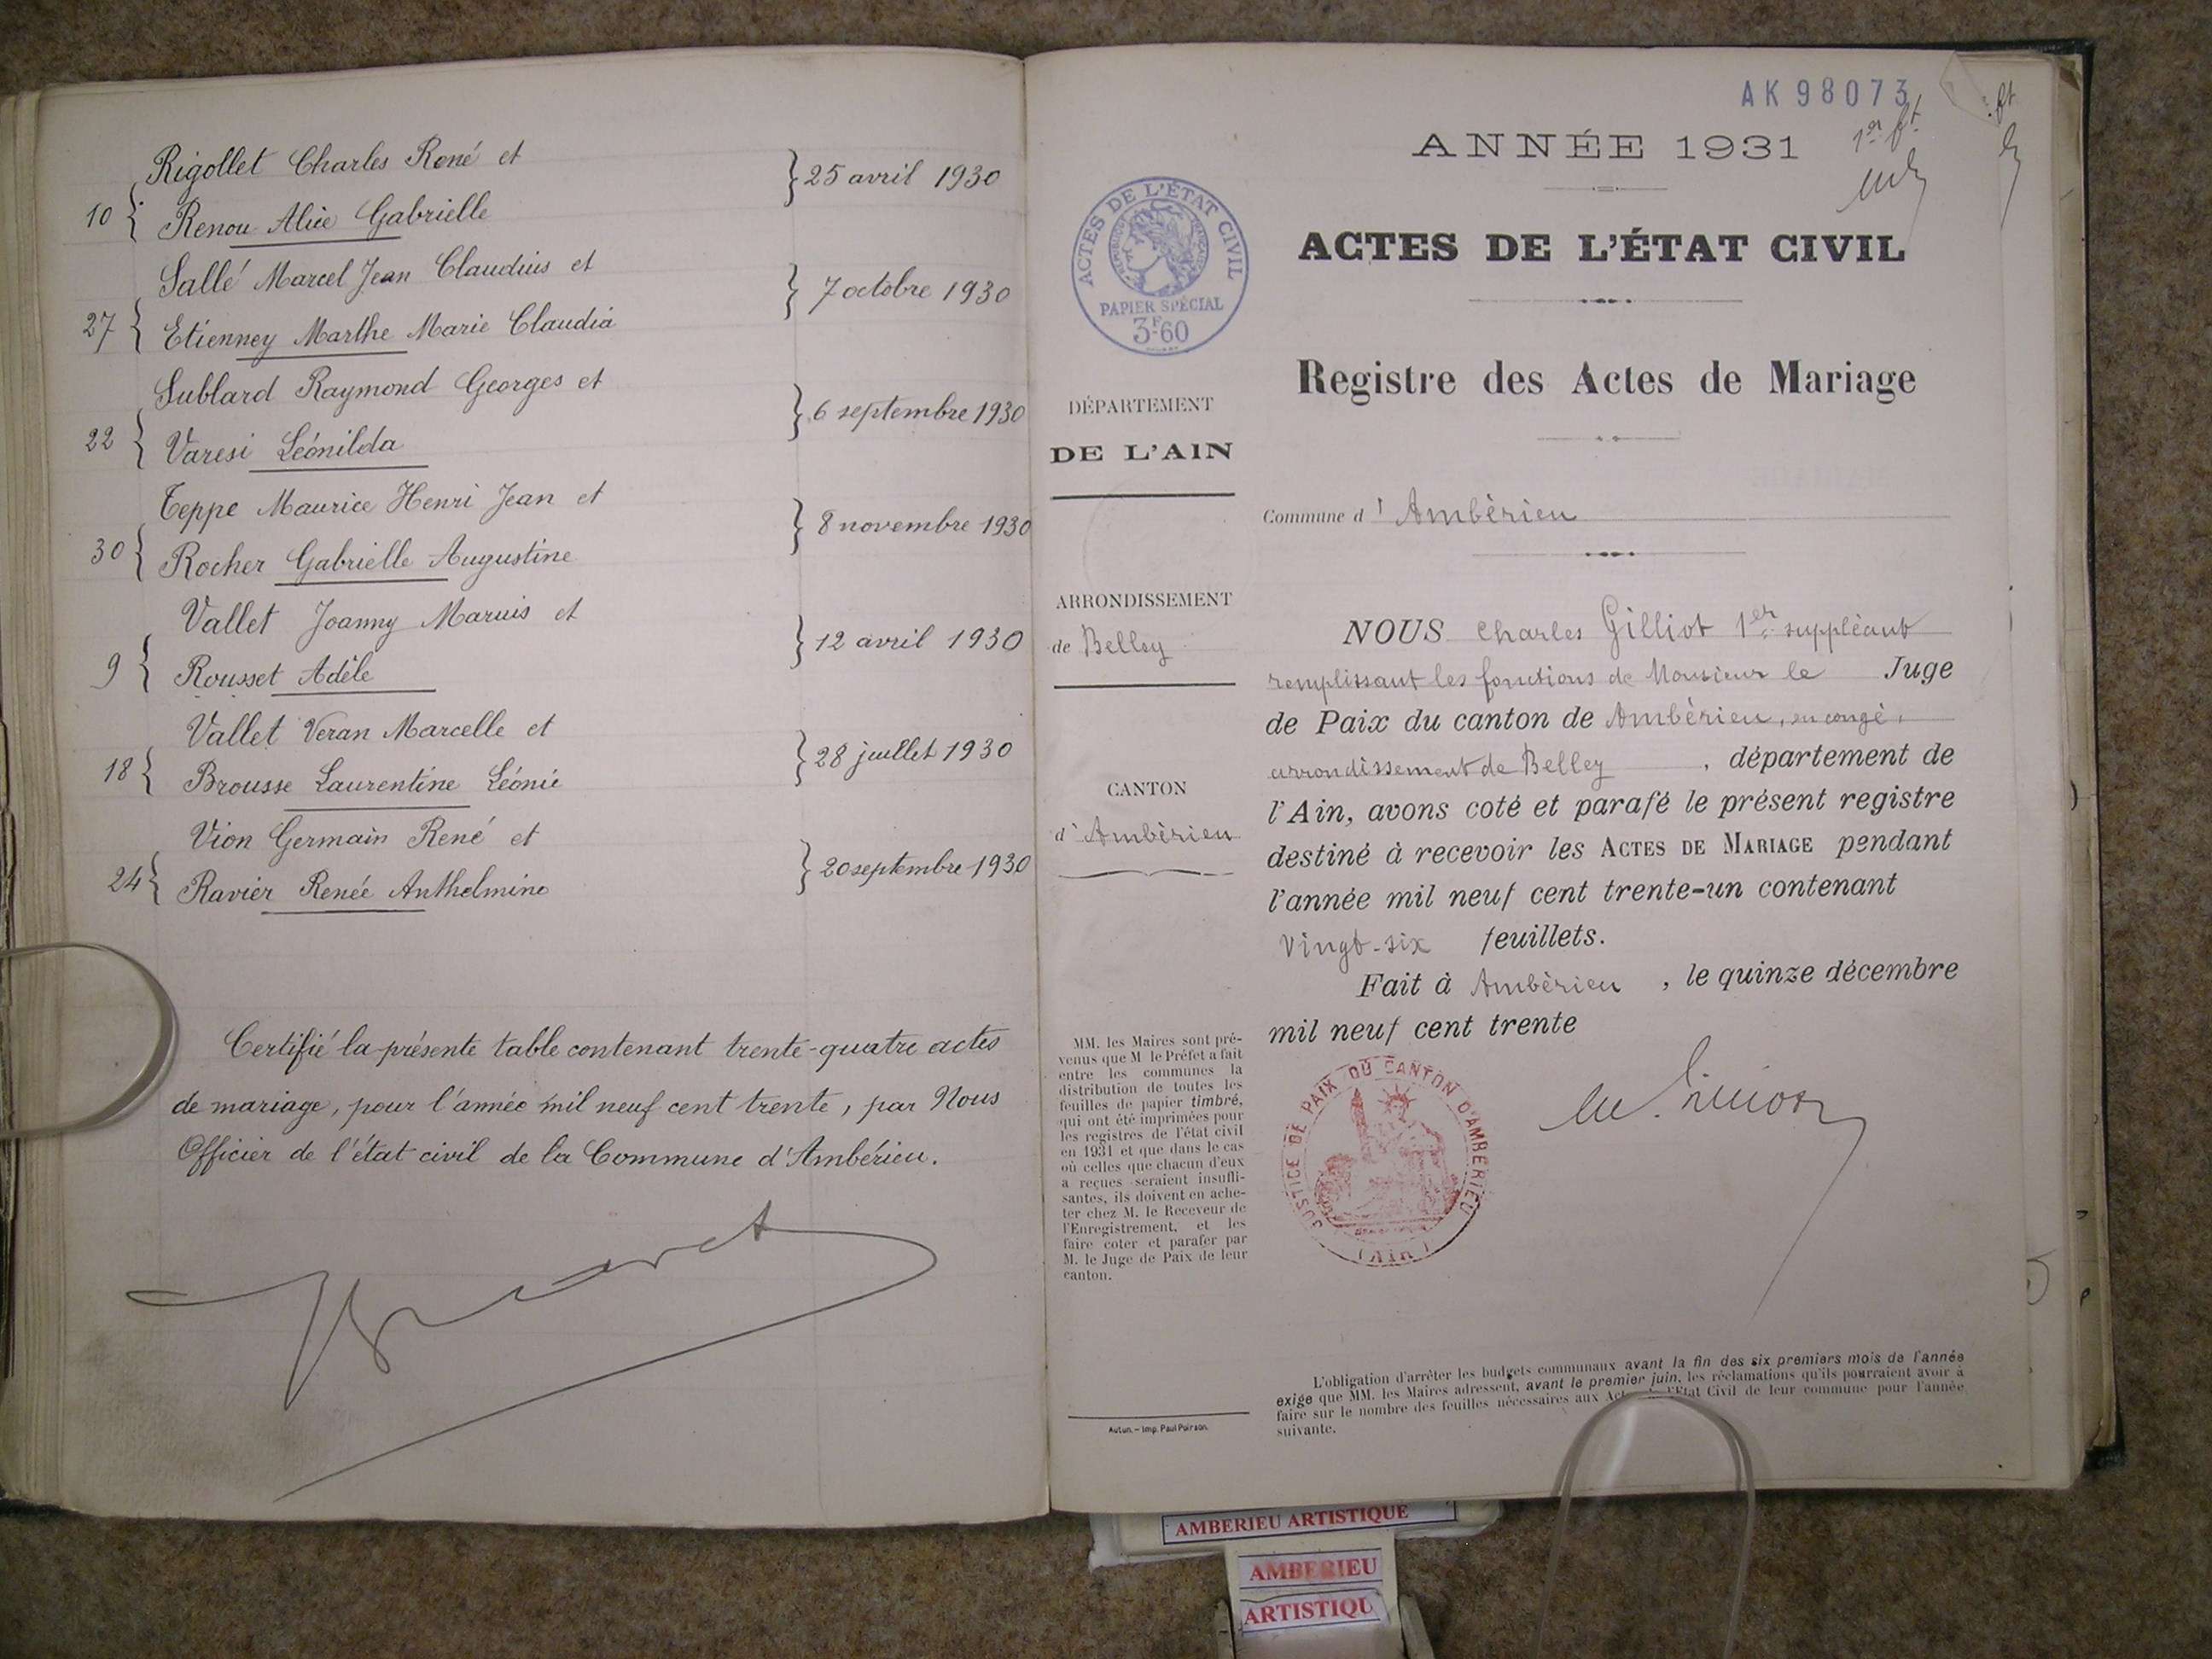 Rigollet Charles René et
10 { Renou Alice Gabrielle } 25 avril 1930
Sallé Marcel Jean Claudius et
27 { Etienney Marthe Marie Claudia } 7 octobre 1930
Sublard Raymond Georges et
22 { Varesi Léonilda } 6 septembre 1930
Teppe Maurice Henri Jean et
30 { Rocher Gabrielle Augustine } 8 novembre 1930
Vallet Joanny Marius et
9 { Rousset Adèle } 12 avril 1930
Vallet Veran Marcelle et
18 { Brousse Laurentine Léonie } 28 juillet 1930
Vion Germain René et
24 { Ravier Renée Anthelmine } 20 septembre 1930
Certifié la présente table contenant trente-quatre actes
de mariage, pour l'année mil neuf cent trente, par Nous
Officier de l'état civil de la Commune d'Ambérieu.
AK 98073
ANNÉE 1931
ACTES DE L'ÉTAT CIVIL
Registre des Actes de Mariage
ACTES DE L'ÉTAT CIVIL
PAPIER SPÉCIAL
3F60
DÉPARTEMENT
DE L'AIN
ARRONDISSEMENT
de Belley
CANTON
d'Ambérieu
MM. les Maires sont pré-
venus que M le Préfet a fait
entre les communes la
distribution de toutes les
feuilles de papier timbré,
qui ont été imprimées pour
les registres de l'état civil
en 1931 et que dans le cas
où celles que chacun d'eux
a reçues seraient insuffi-
santes, ils doivent en ache-
ter chez M. le Receveur de
l'Enregistrement, et les
faire coter et parafer par
M. le Juge de Paix de leur
canton.
Autun. – Imp. Paul Poirson.
Commune d'Ambérieu
NOUS Charles Gilliot 1er suppléant
remplissant les fonctions de Monsieur le Juge
de Paix du canton de Ambérieu, en congé,
arrondissement de Belley, département de
l'Ain, avons coté et parafé le présent registre
destiné à recevoir les ACTES DE MARIAGE pendant
l'année mil neuf cent trente-un contenant
Vingt-six feuillets.
Fait à Ambérieu, le quinze décembre
mil neuf cent trente
JUSTICE DE PAIX DU CANTON D'AMBERIEU
(Ain)
L'obligation d'arrêter les budgets communaux avant la fin des six premiers mois de l'année
exige que MM. les Maires adressent, avant le premier juin, les réclamations qu'ils pourraient avoir à
faire sur le nombre des feuilles nécessaires aux l'Etat Civil de leur commune pour l'année
suivante.
AMBERIEU ARTISTIQUE
AMBERIEU
ARTISTIQU